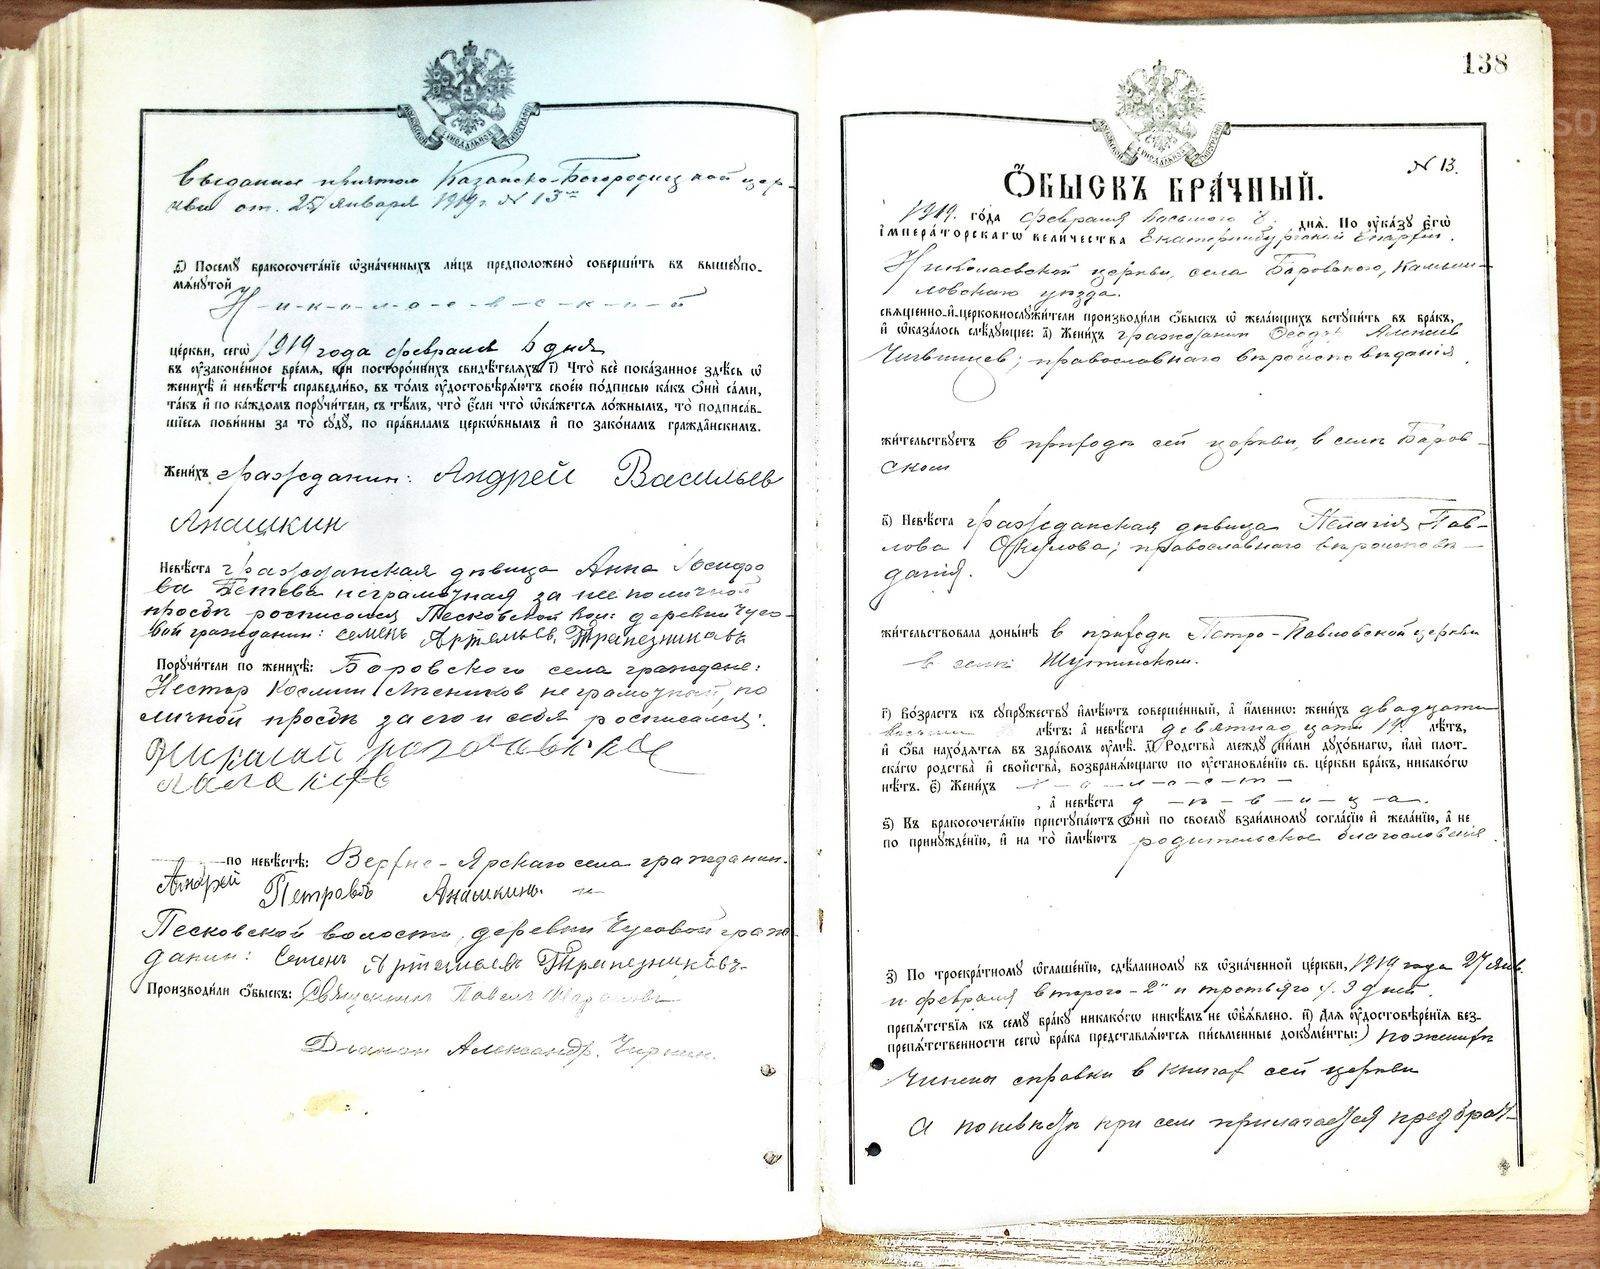 выданное причтом Казанско-Богородицкой цер-
кви от. 25 Января 1919 г. N 13
в҃) Посемꙋ бракосочета́нїе ѡ҆зна́ченныхъ ли́цъ предположено̀ соверши́ть въ вышеꙋпо-
мѧ́нꙋтой
Н-и-к-о-л-а-е-в-с-к-о-й
це́ркви, сегѡ̀ 1919 года февраля 6 дня
въ ᲂу҆зако́ненное вре́мѧ, при посторо́ннихъ свидѣ́телѧхъ. г҃і) Что̀ всѐ пока́занное здѣ́сь ѡ҆
женихѣ̀ и҆ невѣ́стѣ справедли́во, въ то́мъ ᲂу҆достовѣрѧ́ютъ свое́ю по́дписью ка́къ ѻ҆нѝ са́ми,
та́къ и҆ по ка́ждомъ порꙋчи́тели, съ тѣ́мъ, что̀ є҆́сли что̀ ѡ҆ка́жетсѧ ло́жнымъ, то̀ подписа́в-
шїесѧ пови́нны за то̀ сꙋдꙋ̀, по пра́виламъ церко́внымъ и҆ по зако́намъ гражда́нскимъ.
Жени́хъ гражданин: Андрей Васильев
Анашкин
Невѣ́ста гражданская девица Анна Іосифо
ва неграмотная за нее по личной
просьбе росписался Песковской вол: деревни Чусо-
вой гражданин: Семенъ Артемьевъ Трапезниковъ
Порꙋчи́тели по женихѣ̀: Боровского села граждане:
Нестор Космин неграмотный, по
личной просьбе за его и себя росписался:
Николай
по невѣ́стѣ: Верхне-Ярскаго села гражданин.
Андрей Петровъ Анашкинъ. и
Песковской волости, деревни Чусовой граж-
данин: Семенъ Артемьевъ Трапезниковъ
Производи́ли ѻ҆́быскъ: Священникъ Павелъ
Диакон Александр. Чиркин.
138
N 13.
Ѻ҆́быскъ бра́чный.
1919. го́да февраля восьмого 8. днѧ̀. По ᲂу҆ка́зꙋ є҆гѡ̀
і҆мпера́торскагѡ вели́чества Екатеринбургской Епархии.
Николаевской церкви, села Боровского, Камыш-
ловского уезда.
свѧще́нно-и҆-церковнослꙋжи́тели производи́ли ѻ҆́быскъ ѡ҆ жела́ющихъ встꙋпи́ть въ бра́къ,
и҆ ѡ҆каза́лось слѣ́дꙋющее: а҃) Жени́хъ гражданин Алексиев
православнаго вероисповедания.
жи́тельствꙋетъ в приходе сей церкви, в селе Боров-
ском
в҃) Невѣ́ста гражданская девица Пелагія Пав-
лова Окулова; православнаго вероиспове-
данія.
жи́тельствовала донынѣ в приходе Петро-Павловской церкви
в селе Шутинском.
г҃) Во́зрастъ къ сꙋпрꙋ́жествꙋ и҆мѣ́ютъ соверше́нный, а҆ и҆́менно: жени́хъ двадцати
восьми лѣ́тъ: а҆ невѣ́ста девятнадцати 19. лѣ́тъ,
и҆ ѻ҆́ба нахо́дѧтсѧ въ здра́вомъ ᲂу҆мѣ̀. д҃) Родства̀ междꙋ ни́ми дꙋхо́внагѡ, и҆лѝ пло́т-
скагѡ родства̀ и҆ сво́йства, возбранѧ́ющагѡ по ᲂу҆становле́нїю св. це́ркви бра́къ, никако́гѡ
нѣ́тъ. є҃) Жени́хъ х-о-л-о-с-т-
, а҆ невѣ́ста д-е-в-и-ц-а-.
ѕ҃) Въ бракосочета́нїю пристꙋпа́ютъ ѻ҆нѝ по своемꙋ̀ взаи́мномꙋ согла́сїю и҆ жела́нїю, а҆ не
по принꙋжде́нїю, и҆ на то̀ и҆мѣ́ютъ родительское благословения.
з҃) По троекра́тномꙋ ѡ҆глаше́нїю, сдѣ́ланномꙋ въ ѡ҆зна́ченной це́ркви, 1919 года 27 Янв.
и февраля второго - 2" и третьяго ч. 3 дней.
препѧ́тствїѧ къ семꙋ̀ бра́кꙋ никако́гѡ никѣ́мъ не ѡ҆б̾ѧ́влено. и҃) Длѧ ᲂу҆достовѣре́нїѧ без-
препѧ́тственности сегѡ̀ бра́ка представлѧ́ютсѧ пи́сьменные докꙋме́нты: а) по женихе
Чинены справки в книгах сей церкви
а по невесте при сем прилагается предбрач-